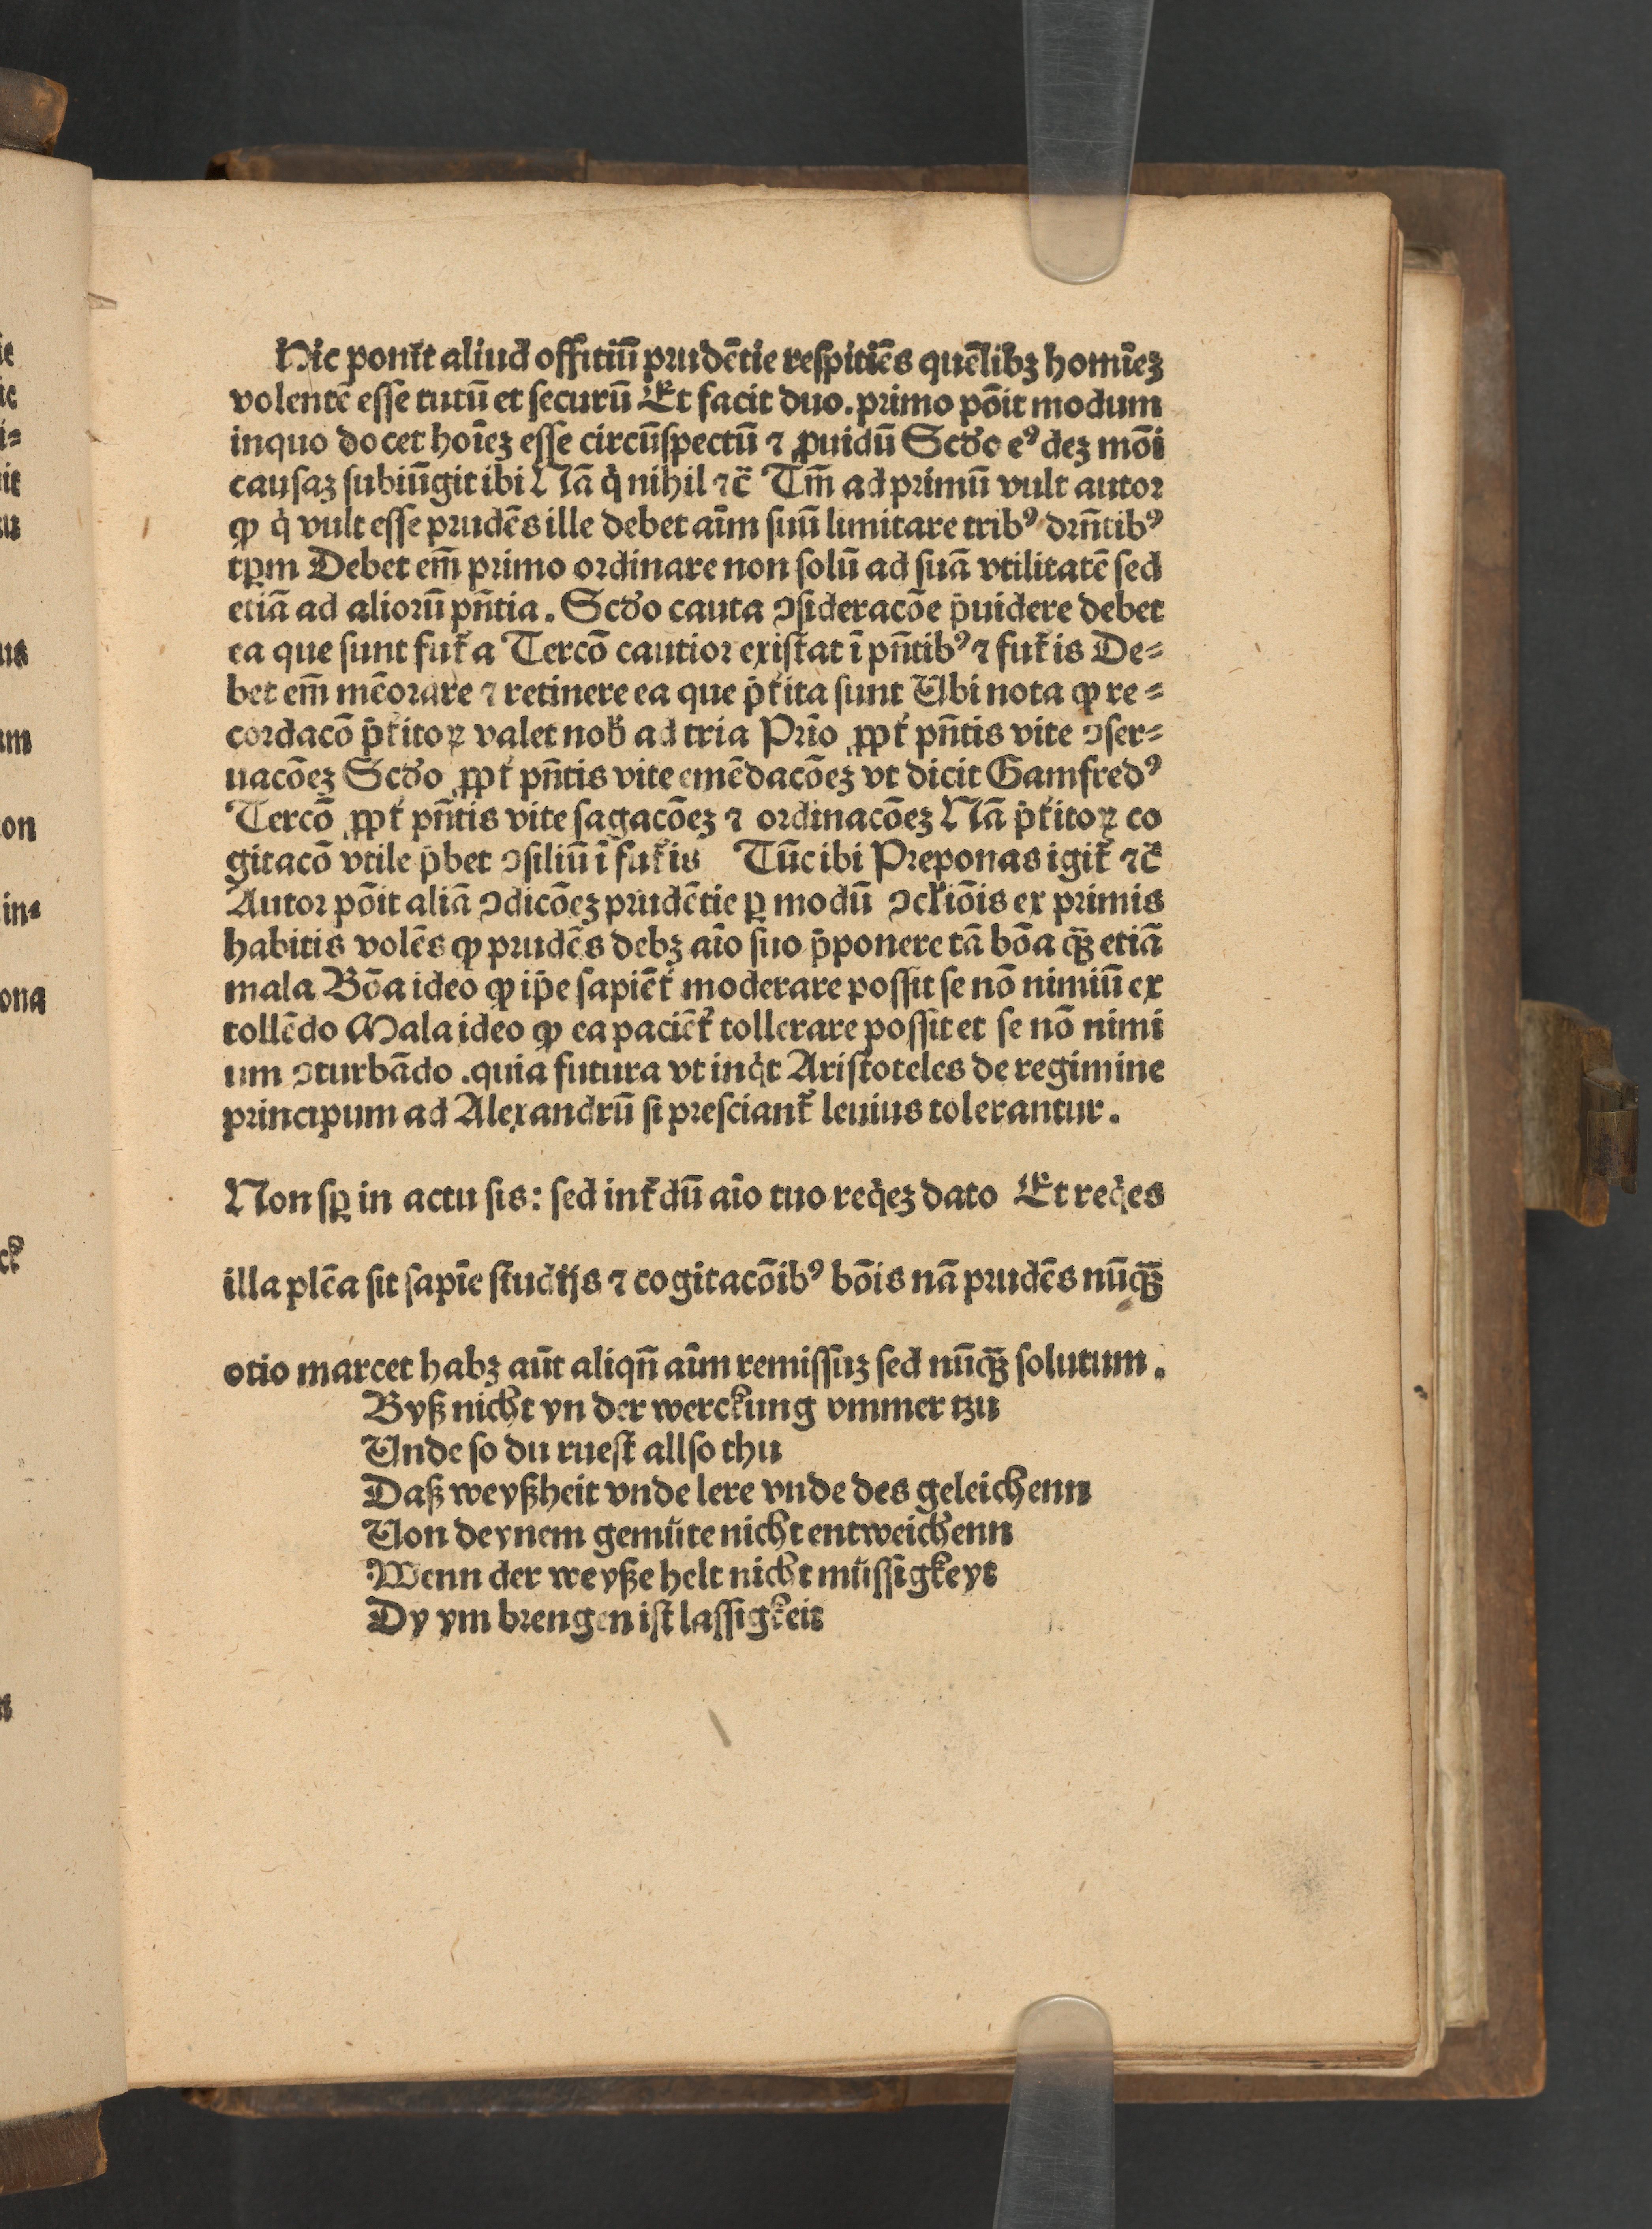 Hic ponit᷑ aliud offitiū prudētie respitiēs quēlibꝫ homīeꝫ
volentē esse tutū et securū Et facit duo. primo pōit modum
inquo docet hoīeꝫ esse circūspectū ⁊ ꝓuidū Scđo eꝰdeꝫ mōi
causaꝫ subiūgit ibi Nā q̇ nihil ⁊c̄ Tm̄ ad primū vult autor
ꝙ q̇ vult esse prudēs ille debet aīm suū limitare tribꝰ drn̄tibꝰ
tꝑm Debet em̄ primo ordinare non solū ad suā vtilitatē sed
etiā ad aliorū pn̄tia. Scđo cauta ↄsideracōe p̄uidere debet
ea que sunt fut᷑a Tercō cautior existat ī pn̄tibꝰ ⁊ fut᷑is De⸗
bet em̄ mēorare ⁊ retinere ea que p̄t᷑ita sunt Ubi nota ꝙ re⸗
cordacō p̄t᷑itoꝝ valet nob̄ ad tria Prīo ꝓpt᷑ pn̄tis vite ↄser⸗
uacōeꝫ Scđo ꝓpt᷑ pn̄tis vite emēdacōeꝫ vt dicit Gamfredꝰ
Tercō ꝓpt᷑ pn̄tis vite sagacōeꝫ ⁊ ordinacōeꝫ Nā p̄t᷑itoꝝ co
gitacō vtile p̄bet ↄsiliū ī fut᷑is Tūc ibi Preponas igit᷑ ⁊c̄
Autor pōit aliā ↄdicōeꝫ prudētie ꝑ modū ↄcl᷑iōis ex primis
habitis volēs ꝙ prudēs debꝫ aīo suo p̄ponere tā bōa qꝫ̄ etiā
mala Bōa ideo ꝙ ip̄e sapiēt᷑ moderare possit se nō nimiū ex
tollēdo Mala ideo ꝙ ea paciēt᷑ tollerare possit et se nō nimi
um ↄturbādo .quia futura vt inq̇t Aristoteles de regimine
principum ad Alexandrū si presciant᷑ leuius tolerantur.
Non sꝑ in actu sis: sed int᷑dū aīo tuo req̇eꝫ dato Et req̇es
illa plēa sit sapīe studijs ⁊ cogitacōibꝰ bōis nā prudēs nūqꝫ̄
otio marcet habꝫ aūt aliqn̄ aīm remissuꝫ sed nūqꝫ̄ solutum.
Byß nicht yn der werckung ymmer tzu
Unde so du ruest allso thu
Daß weyßheit vnde lere vnde des geleichenn
Von deynem gemüte nicht entweichenn
Wenn der weyße helt nicht müssigkeyt
Dy ym brengen ist lassigkeit